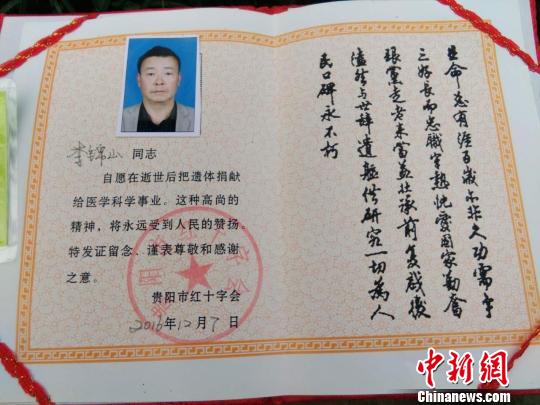 李锦山 同志
自愿在逝世后把遗体捐献
给医学科学事业。这种高尚的
精神，将永远受到人民的赞扬。
特发证留念、谨表尊敬和感谢
之意。
贵阳市红十字会
2016年12月7日
贵阳市红十字会
生命总有涯百歲亦非久功需争
三好忠職守熱忱愛國家勤奮
跟黨走老来當益壮承前啟後
溘然与世辞遺軀供研究一切為人
民口碑永不朽
中新网
Chinanews.com